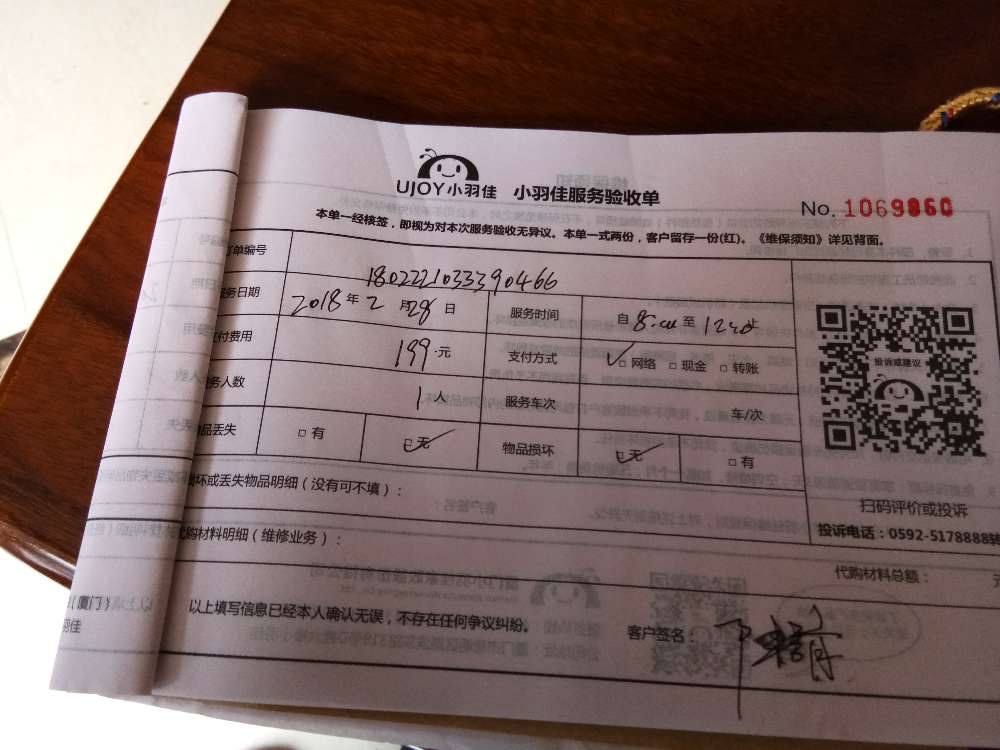 UJOY小羽佳 小羽佳服务验收单
No. 1069860
本单一经核签，即视为对本次服务验收无异议。本单一式两份，客户留存一份(红)。《维保须知》详见背面。
订单编号 1802221033390466
服务日期 2018年2月28日 服务时间 自8:00至12:00止
付费用 199元 支付方式 □网络 □现金 □转账
务人数 1人 服务车次 车/次
品丢失 □有 □无 物品损坏 □无 □有
投诉或建议
扫码评价或投诉
投诉电话：0592-5178888转
损坏或丢失物品明细（没有可不填）：
代购材料明细（维修业务）：
代购材料总额：
(厦门)
羽佳
以上填写信息已经本人确认无误，不存在任何争议纠纷。
客户签名：